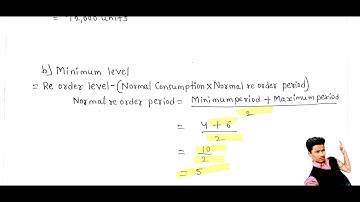 = 12,000 units
b) Minimum level
= Re order level-(Normal Consumption x Normal re order period)
Normal re order period = Minimum period + Maximum period
2
= 4 + 6
2
= 10
2
= 5